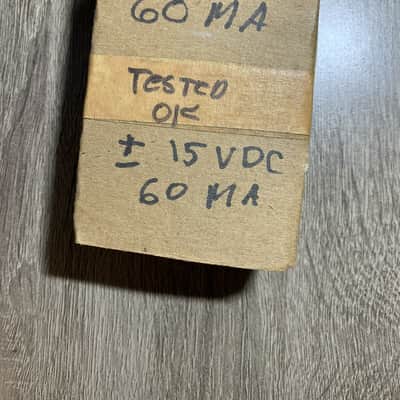 60 MA
TESTED
OK
± 15 VDC
60 MA